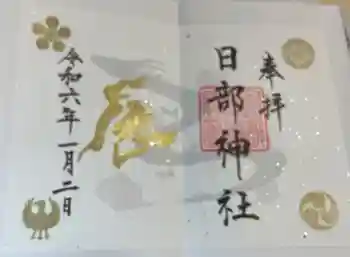 奉拝
日部神社
令和六年一月二日